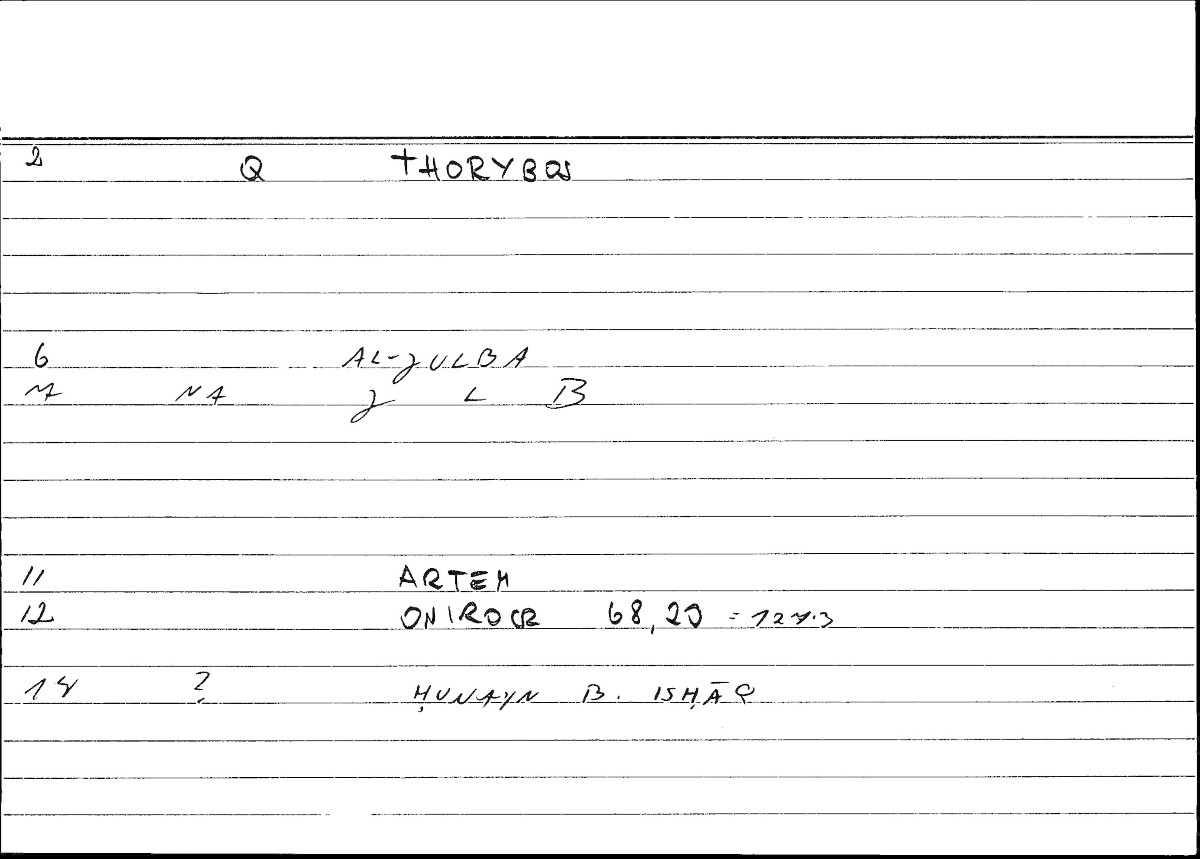 2 Q THORYBOS
6 AL-JULBA
7 NA J L B
11 ARTEM
12 ONIROCR 68,20 = 127.3
14 ? ḤUNAYN B. ISḤĀQ